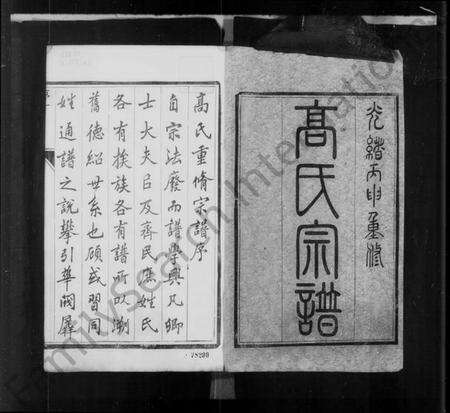 光緒丙申重修
高氏宗譜
高氏重脩宗譜序
自宗法廢而譜學興凡卿
士大夫以及齊民庶姓氏
各有挨族各有譜所以溯
舊德紹世系也顧或習同
姓通譜之說攀引華閥犀
78299
FamilySearch International